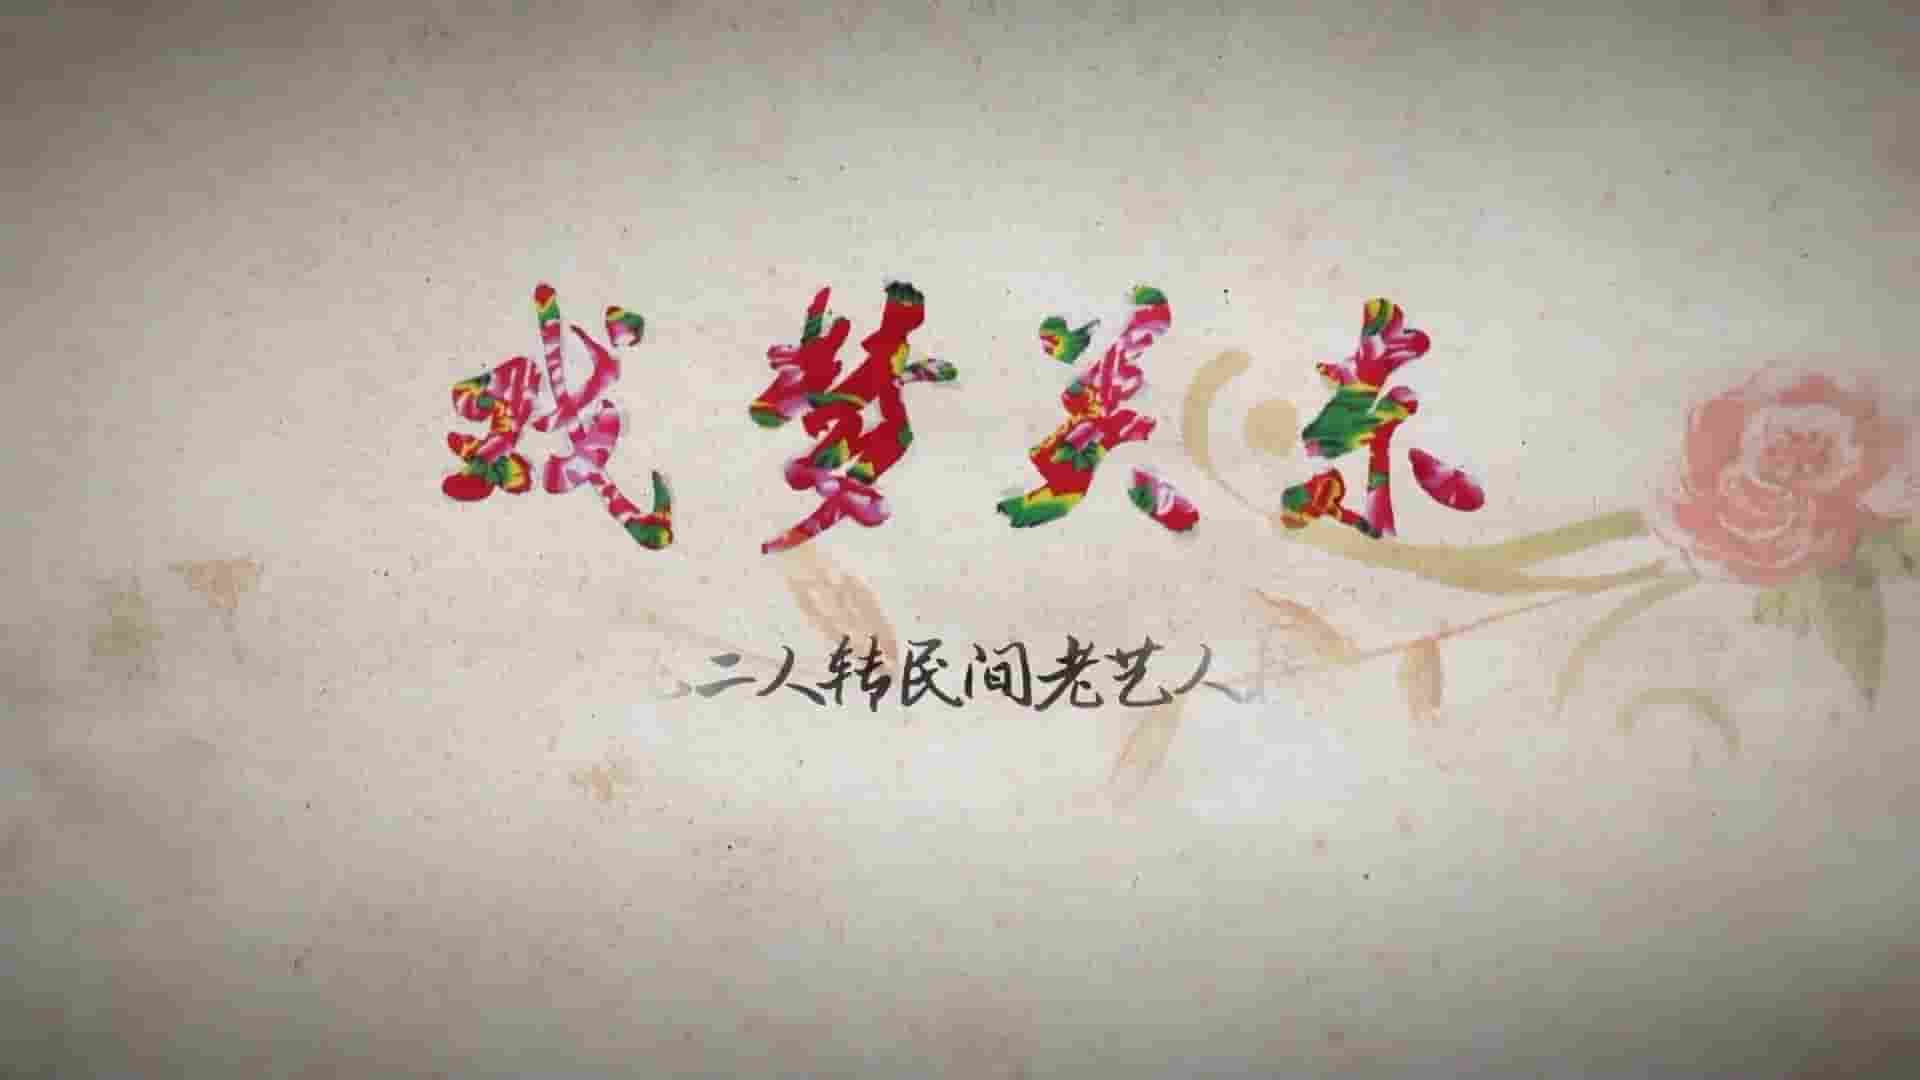 戏梦关东
二人转民间老艺人